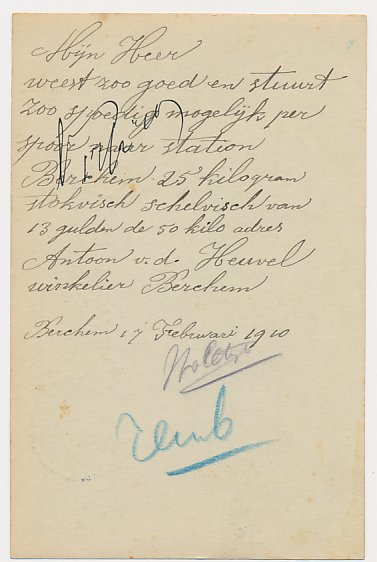 Mijn Heer
weest zoo goed en stuurt
zoo spoedig mogelijk per
spoor naar station
Berchem 25 kilogram
stokvisch schelvisch van
13 gulden de 50 kilo adres
Antoon v. d. Heuvel
winkelier Berchem
Berchem 17 Februari 1910